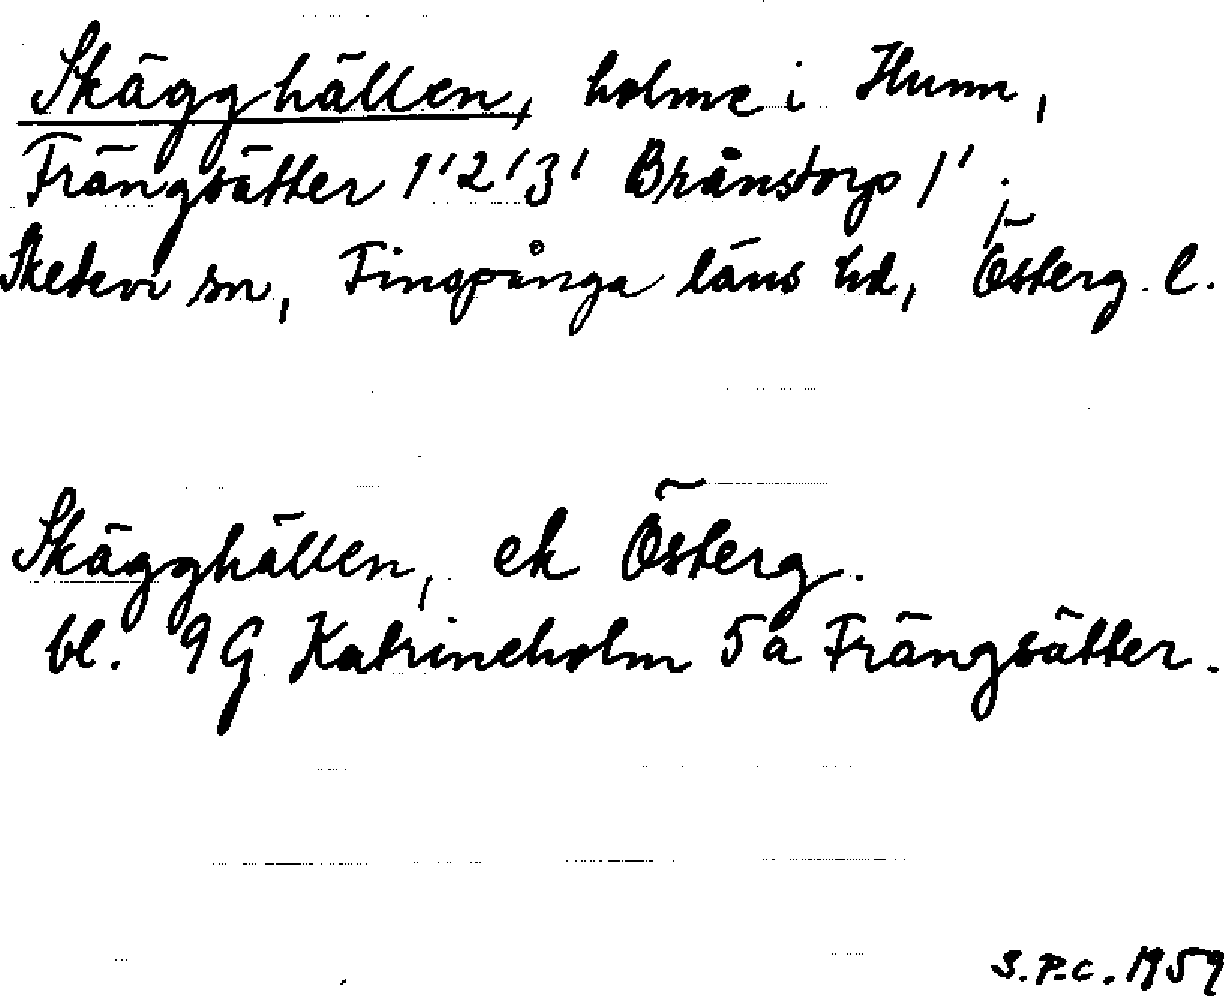 Skägghällen, holme i Hunn,
Frängsätter 1'2'3' Brånstorp 1';
Skedevi sn, Finspånga läns hd, Österg. l.
Skägghällen, ek Österg.
bl. 9G Katrineholm 5a Frängsätter.
S.P.C. 1959